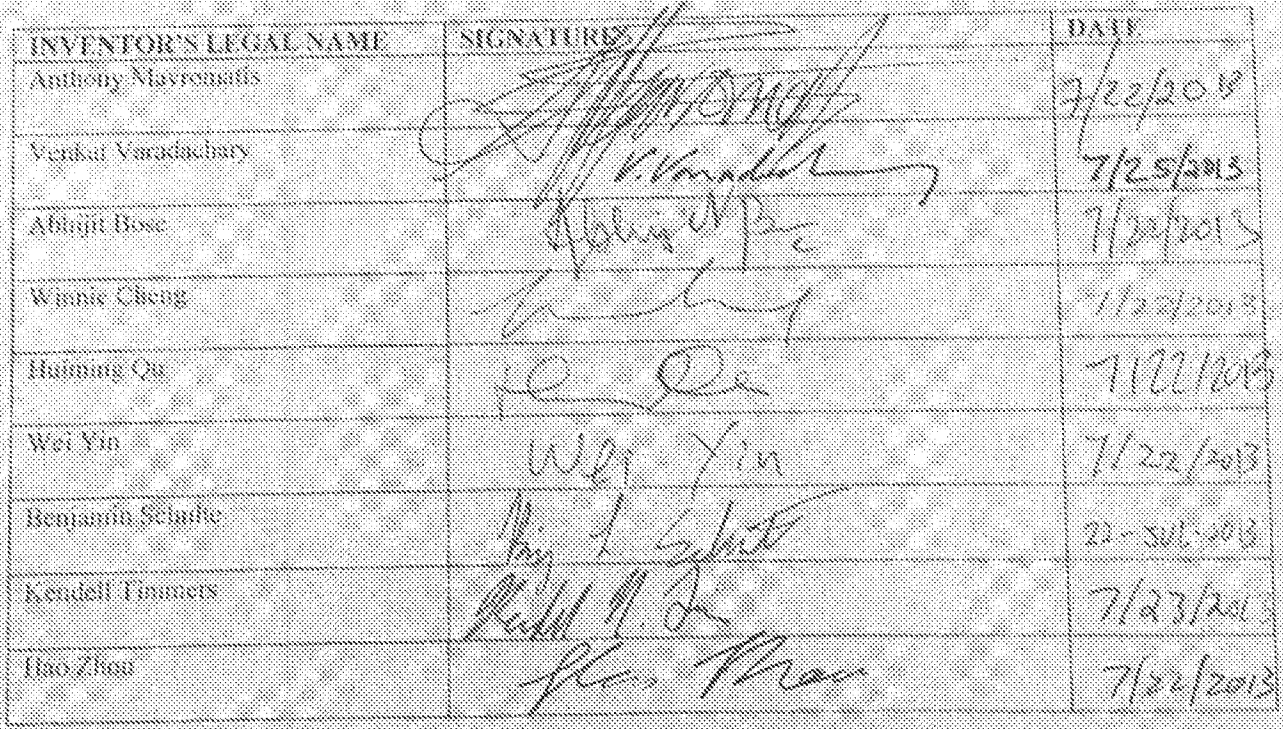 INVENTOR'S LEGAL NAME SIGNATURE DATE
Anthony Mavromatis 7/22/2013
Venkat Varadachary V. Varadachary 7/25/2013
Abhijit Bose Abhijit Bose 7/22/2013
Winnie Cheng 7/22/2013
Huiming Qu 7/22/2013
Wei Yin Wei Yin 7/22/2013
Benjamin 22-JUL-2013
Kendell Timmers 7/23/201
Hao Zhou Hao Zhou 7/22/2013